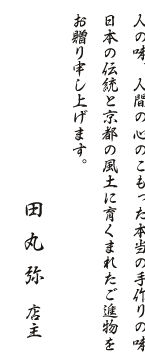 人の味、人間の心のこもった本当の手作りの味
日本の伝統と京都の風土に育くまれたご進物を
お贈り申し上げます。
田丸弥 店主